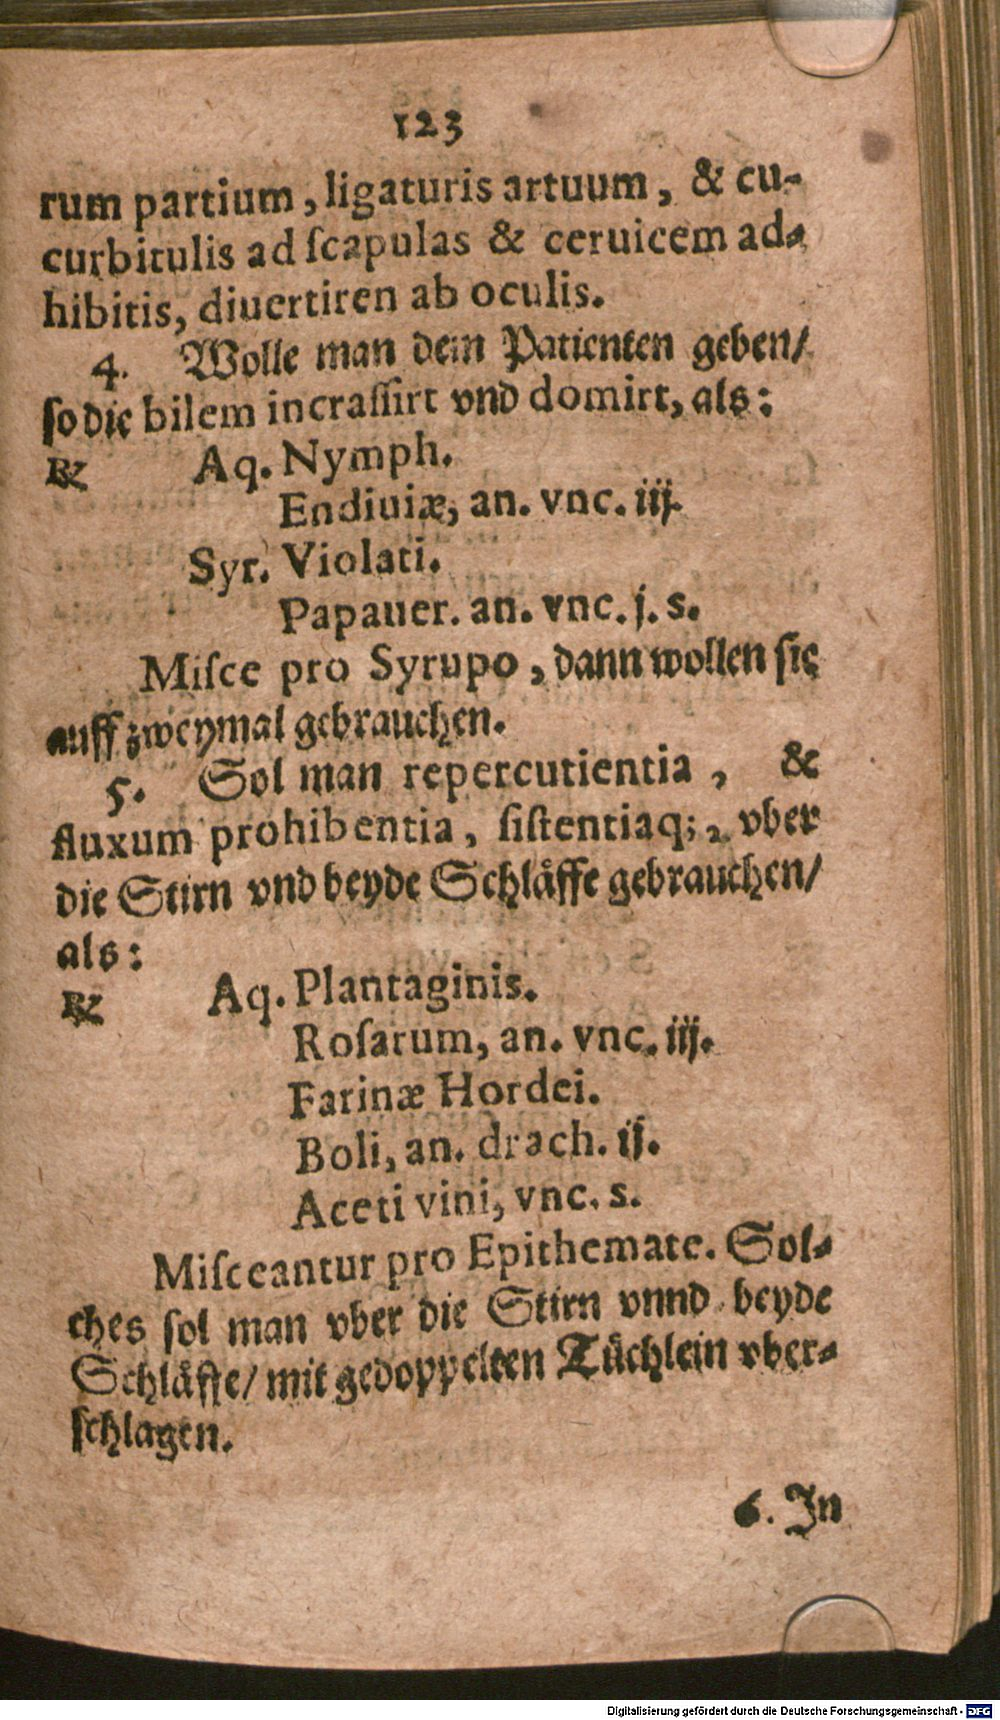 123
rum partium, ligaturis artuum, & cu-
curbitulis ad ſcapulas & ceruicem ad-
hibitis, diuertiren ab oculis.
4. Wolle man dem Patienten geben/
ſo die bilem incraſſirt vnd domirt, als:
℞ Aq. Nymph.
Endiuiæ, an. vnc. iij.
Syr. Violati.
Papauer. an. vnc. j. s.
Miſce pro Syrupo, dann wollen ſie
auff zweymal gebrauchen.
5. Sol man repercutientia, &
fluxum prohibentia, ſiſtentiaq;, vber
die Stirn vnd beyde Schläffe gebrauchen/
als:
℞ Aq. Plantaginis.
Roſarum, an. vnc. iij.
Farinæ Hordei.
Boli, an. drach. ij.
Aceti vini, vnc. s.
Miſceantur pro Epithemate. Sol-
ches ſol man vber die Stirn vnnd beyde
Schläffe/ mit gedoppelten Tüchlein vber-
ſchlagen.
6. In
Digitalisierung gefördert durch die Deutsche Forschungsgemeinschaft - DFG